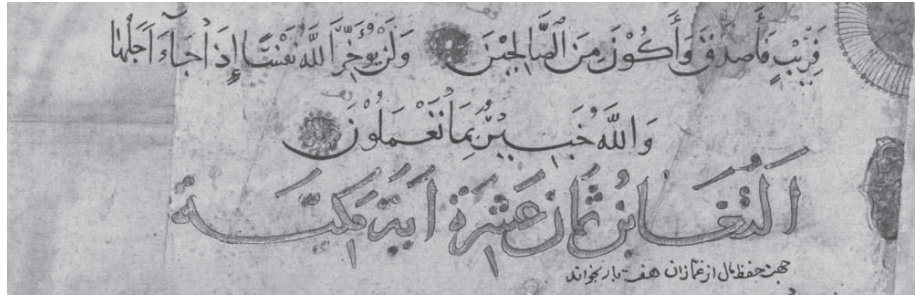 قَرِيْبٍ فَأَصَّدَّقَ وَأَكُوْنَ مِنَ الصَّالِحِيْنَ وَلَنْ يُؤَخِّرَ اللَّهُ نَفْسًا إِذَا جَآءَ اَجَلُهَا
وَاللَّهُ خَبِيْرٌ بِمَا تَعْمَلُوْنَ
اَلتَّغَابُنِ ثَمَانَ عَشْرَةَ اَيَةً مَكِيَّة
جهت حفظ مال از غمازان هفت بار بخواند